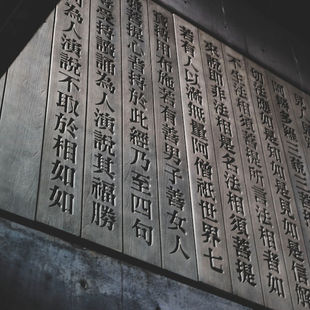 阿耨多羅三藐三菩
切法應如是知如是見如是信解
不生法相須菩提所言法相者如
來說即非法相是名法相須菩提
若有人以滿無量阿僧祇世界七
寶持用布施若有善男子善女人
發菩提心者持於此經乃至四句
受持讀誦為人演說其福勝
何為人演說不取於相如如